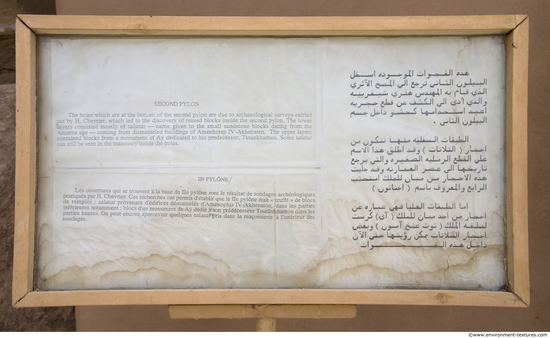 SECOND PYLON
The holes which are at the bottom of the second pylon are due to archaeological surveys carried
out by H. Chevrier, which led to the discovery of reused blocks inside the second pylon. The lower
layers consisted mostly of talatat — name given to the small sandstone blocks dating from the
Amarna age — coming from dismantled buildings of Amenhotep IV-Akhenaton. The upper layers
contained blocks from a monument of Ay dedicated to his predecessor, Tutankhamun. Some talatat
can still be seen in the masonry inside the holes.
IIe PYLÔNE
Les ouvertures qui se trouvent à la base du IIe pylône sont le résultat de sondages archéologiques
pratiqués par H. Chevrier. Ces recherches ont permis d'établir que le IIe pylône était « truffé » de blocs
de remploi : talatat provenant d'édifices démontés d'Aménophis IV-Akhenaton, dans les parties
inférieures notamment ; blocs d'un monument de Ay dédié à son prédécesseur Toutânkhamon dans les
parties hautes. On peut encore apercevoir quelques talatat pris dans la maçonnerie à l'intérieur des
sondages.
هذه الفجوات الموجودة أسفل
البيلون الثاني ترجع الى المسح الأثري
الذي قام به المهندس هنري شيفرييه
والذي أدى الى الكشف عن قطع حجريه
أعيد استخدامها كحشو داخل جسم
البيلون الثاني .
الطبقات السفليه منها تتكون من
احجار ( الثلاتات ) وقد اطلق هذا الاسم
على القطع الرمليه الصغيره والتي يرجع
تاريخها الى عصر العمارنه وقد جلبت
هذه الاحجار من مبان للملك امنحتب
الرابع والمعروف باسم ( اخناتون )
اما الطبقات العليا فهي عباره عن
احجار من أحد مبان للملك ( آى ) كرست
لسلفه الملك ( توت عنخ آمون ) وبعض
احجار الثلاتات يمكن رؤيتها حتى الآن
داخل هذه الفجوات
© www.environment-textures.com